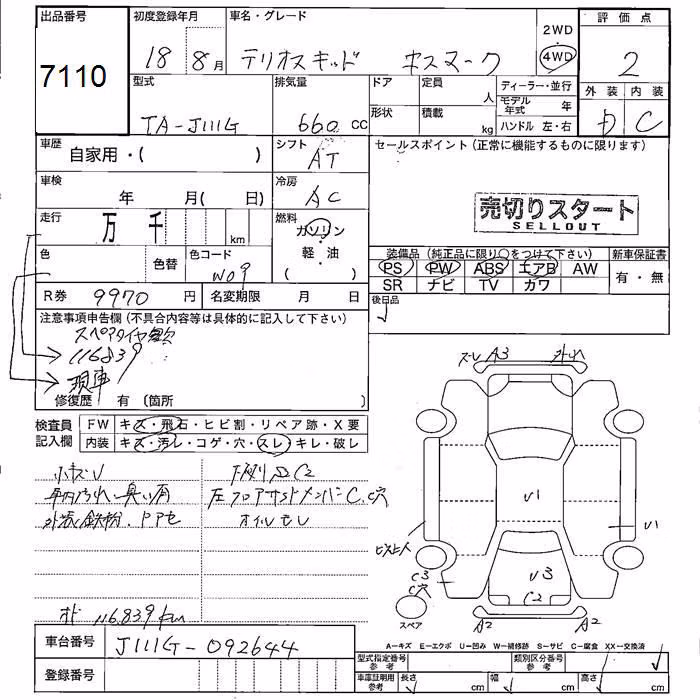 出品番号
7110
初度登録年月
18 8月
車名・グレード
テリオスキッド キスマーク
2WD
4WD
評価点
2
外装 内装
D C
型式
TA-J111G
排気量
660 cc
ドア
形状
定員 人
積載 kg
ディーラー・並行
モデル年式 年
ハンドル 左・右
車歴
自家用・( )
シフト
AT
セールスポイント(正常に機能するものに限ります)
売切りスタート
SELLOUT
車検 年 月( 日)
冷房
AC
走行 万 千 km
燃料
ガソリン
・
軽油
( )
色
色替
色コード
W09
装備品(純正品に限り○をつけて下さい)
PS PW ABS エアB AW
SR ナビ TV カワ
新車保証書
有・無
R券 9970 円
名変期限 月 日
後日品
注意事項申告欄(不具合内容等は具体的に記入して下さい)
スペアタイヤ欠
116839
現車
修復歴 有 (箇所 )
検査員記入欄
FW キズ・飛石・ヒビ割・リペア跡・X要
内装 キズ・汚レ・コゲ・穴・スレ・キレ・破レ
小キズU
車内汚れ、臭い有
外装 鉄粉、ドアセ
下廻りC2
左フロアサイドメンバーC、C穴
オイルモレ
オド 116,839km
ズレ A3 外れ
U1
U1
U3
C2
C3
C穴
A2 A2
スペア
A=キズ E=エクボ U=凹み W=補修跡 S=サビ C=腐食 XX=交換済
車台番号 J111G-092644
登録番号
型式指定番号 参考
類別区分番号 参考
車庫証明用 参考
長さ cm
幅 cm
高さ cm